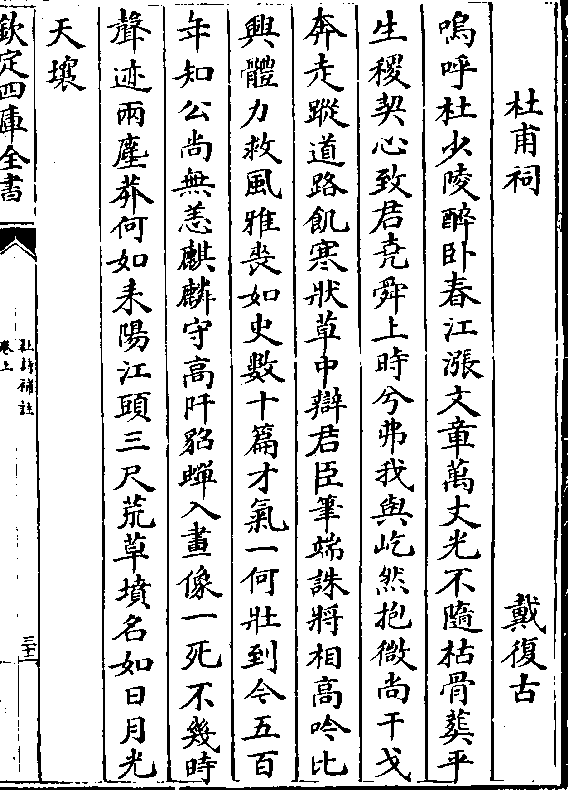 杜甫祠 戴復古
嗚呼杜少陵醉卧春江漲文章萬丈光不隨枯骨葬平
生稷契心致君堯舜上時兮弗我與屹然抱微尚干戈
奔走蹤道路飢寒狀草中辯君臣筆端誅將相高吟比
興體力救風雅喪如史數十篇才氣一何壯到今五百
年知公尚無恙麒麟守高阡貂蟬入畫像一死不幾時
聲迹兩塵莽何如耒陽江頭三尺荒草墳名如日月光
天壤
欽定四庫全書
卷上
三十二